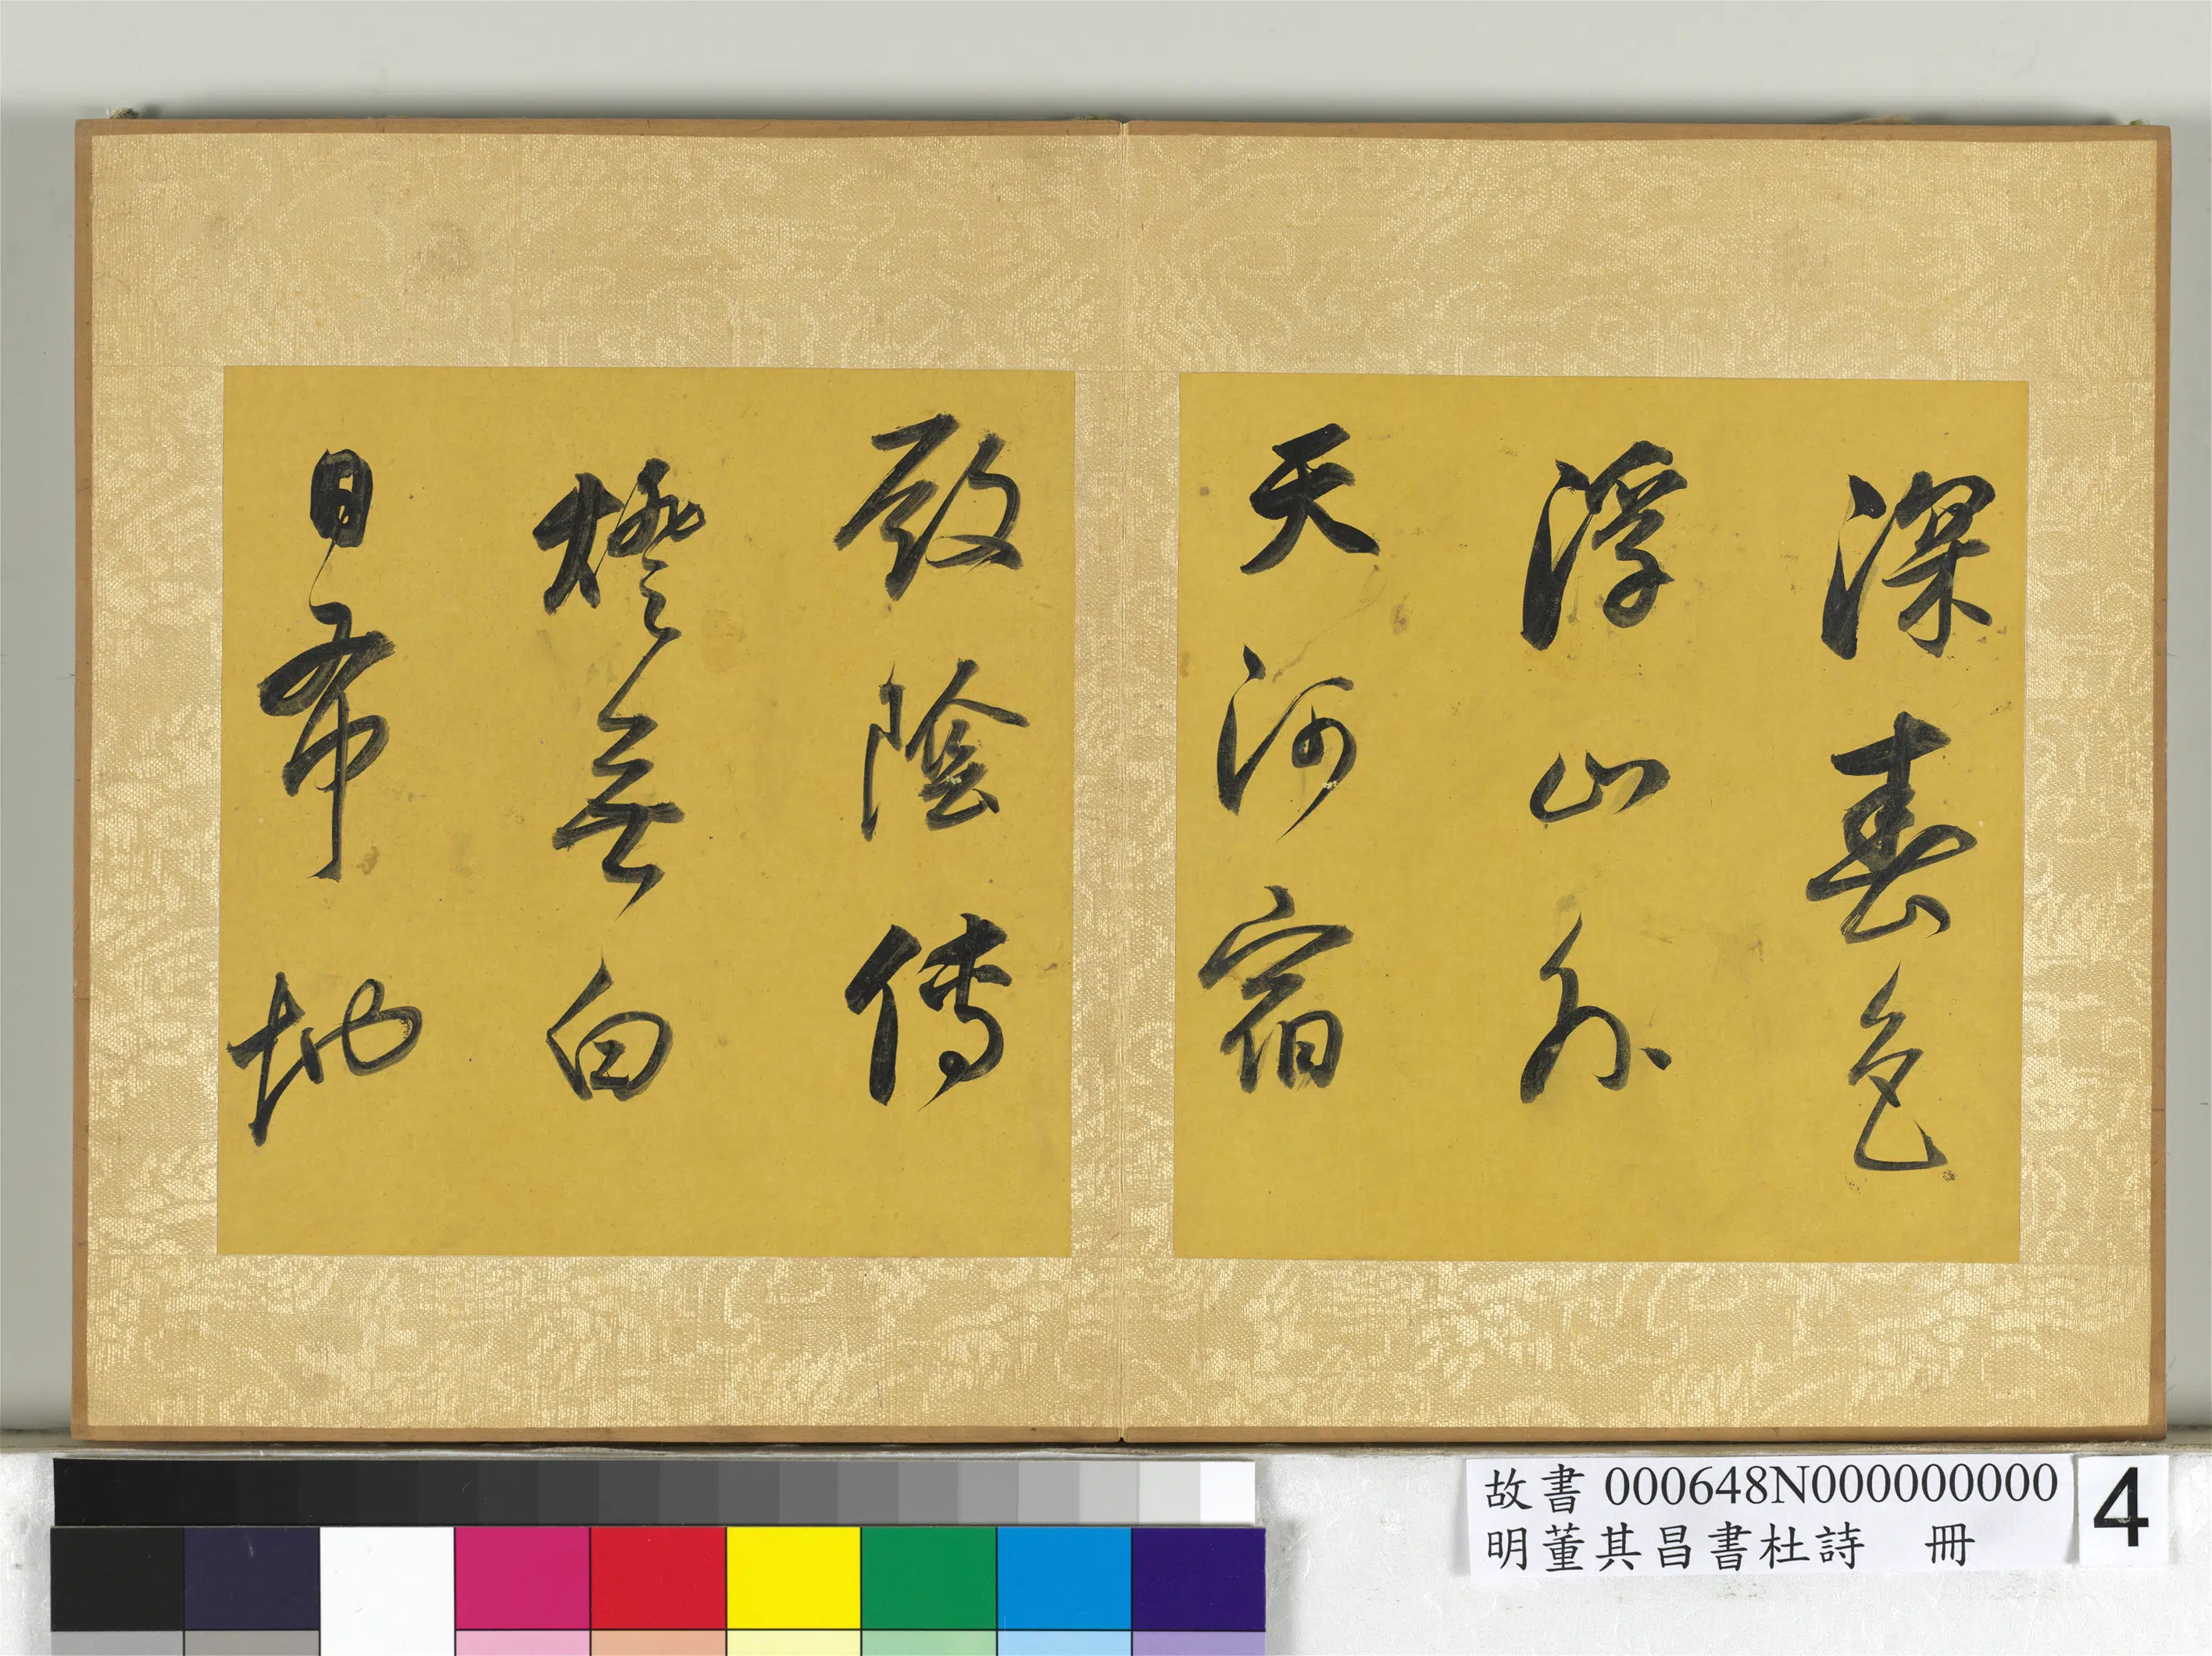 深春色
浮山外
天河宿
殿陰傳
燈無白
日布地
故書 000648N000000000
明董其昌書杜詩 冊
4